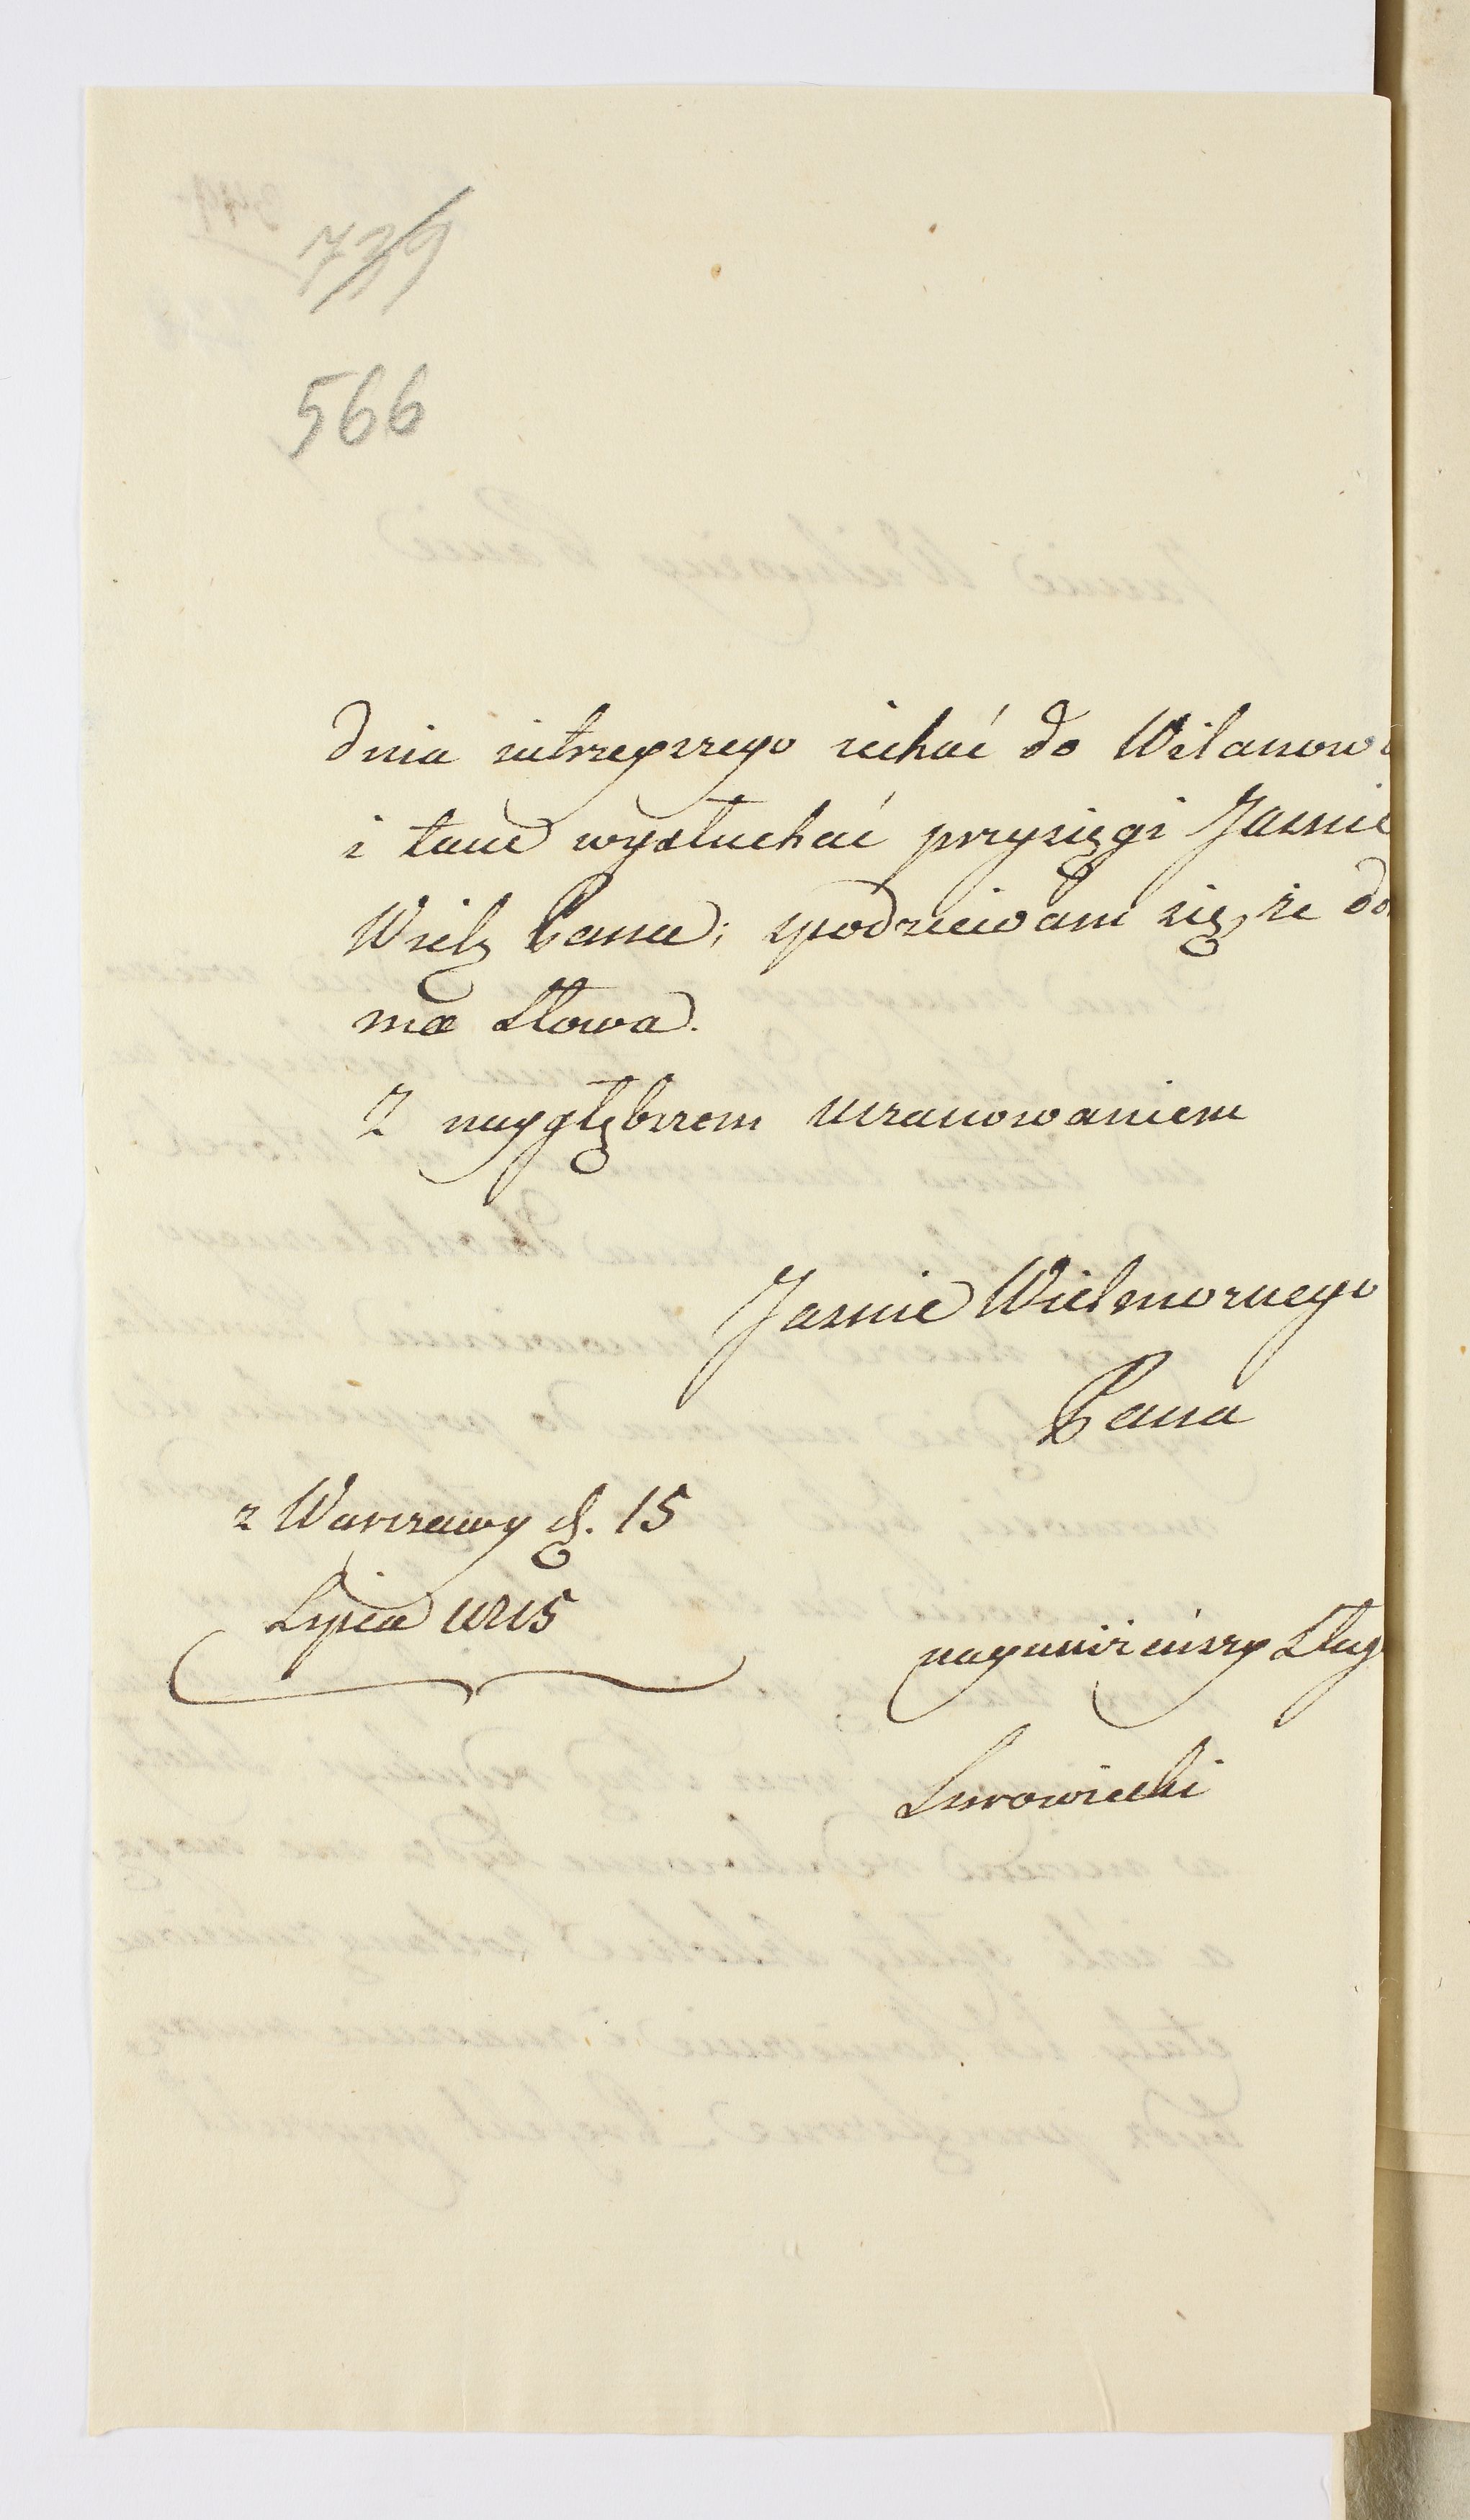 739
566
dnia iutrzeyszego iechać do Wilanowa
i tam wysłuchać przysięgi Jasnie
Wielg Pana; spodziewam się, że do
ma słowa.
Z naygłębszem uszanowaniem
Jasnie Wielmożnego
Pana
z Warszawy d. 15
Lipca 1815
nayuniżeńszy Sług
Surowiecki